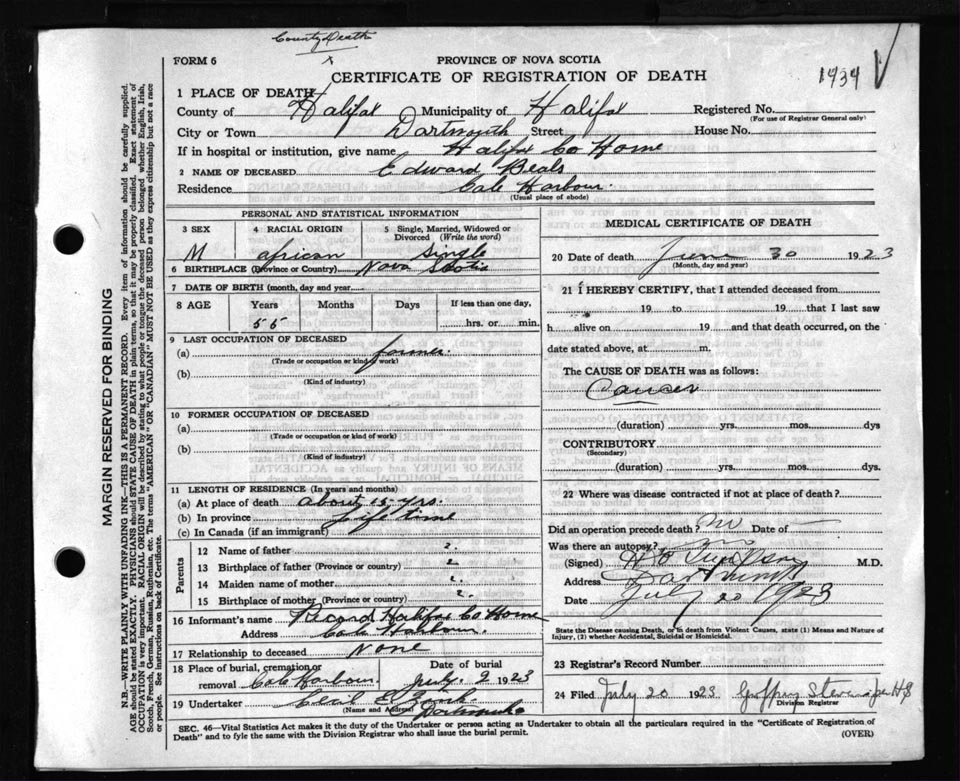 County Death
1434
FORM 6
PROVINCE OF NOVA SCOTIA
CERTIFICATE OF REGISTRATION OF DEATH
1 PLACE OF DEATH
County of Halifax Municipality of Halifax Registered No.
(For use of Registrar General only)
City or Town Dartmouth Street House No.
If in hospital or institution, give name Halifax Co Home
2 NAME OF DECEASED Edward Beals
Residence Cole Harbour.
(Usual place of abode)
PERSONAL AND STATISTICAL INFORMATION
3 SEX 4 RACIAL ORIGIN 5 Single, Married, Widowed or Divorced (Write the word)
M african Single
6 BIRTHPLACE (Province or Country) Nova Scotia
7 DATE OF BIRTH (month, day and year)
8 AGE Years Months Days If less than one day,
55 hrs. or min.
9 LAST OCCUPATION OF DECEASED
(a) farmer.
(Trade or occupation or kind of work)
(b)
(Kind of industry)
10 FORMER OCCUPATION OF DECEASED
(a)
(Trade or occupation or kind of work)
(b)
(Kind of industry)
11 LENGTH OF RESIDENCE (In years and months)
(a) At place of death about 15 yrs.
(b) In province Life time
(c) In Canada (if an immigrant)
Parents
12 Name of father ?
13 Birthplace of father (Province or country) ?
14 Maiden name of mother ?
15 Birthplace of mother (Province or country) ?
16 Informant's name Record Halifax Co Home
Address Cole Harbour.
17 Relationship to deceased None
18 Place of burial, cremation or removal Cole Harbour Date of burial July 2 1923
19 Undertaker Cecil E. Zink
(Name and Address) Dartmouth
MEDICAL CERTIFICATE OF DEATH
20 Date of death June 30 1923
(Month, day and year)
21 I HEREBY CERTIFY, that I attended deceased from
19 to 19 that I last saw
h alive on 19 and that death occurred, on the
date stated above, at m.
The CAUSE OF DEATH was as follows:
Cancer
(duration) yrs. mos. dys
CONTRIBUTORY
(Secondary)
(duration) yrs. mos. dys.
22 Where was disease contracted if not at place of death?
Did an operation precede death? no Date of
Was there an autopsy? no
(Signed) M.D.
Address Dartmouth
Date July 20 1923
State the Disease causing Death, or in death from Violent Causes, state (1) Means and Nature of
Injury, (2) whether Accidental, Suicidal or Homicidal.
23 Registrar's Record Number
24 Filed July 20 1923 Geoffrey Stevens
Division Registrar
SEC. 46—Vital Statistics Act makes it the duty of the Undertaker or person acting as Undertaker to obtain all the particulars required in the "Certificate of Registration of
Death" and to fyle the same with the Division Registrar who shall issue the burial permit.
(OVER)
MARGIN RESERVED FOR BINDING
N.B.—WRITE PLAINLY WITH UNFADING INK—THIS IS A PERMANENT RECORD. Every item of information should be carefully supplied.
AGE should be stated EXACTLY. PHYSICIANS should STATE CAUSE OF DEATH in plain terms, so that it may be properly classified. Exact statement of
OCCUPATION is very important. RACIAL ORIGIN will be described by stating to what people or tongue the deceased person belonged whether English, Irish,
Scotch, French, German, Russian, Ruthenian, etc. The terms "AMERICAN" OR "CANADIAN" MUST NOT BE USED as they express citizenship but not a race
or people. See instructions on back of Certificate.